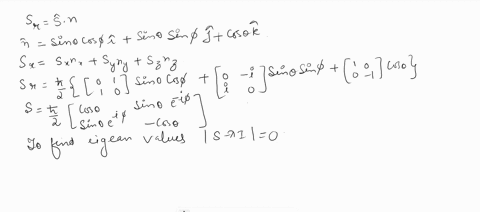 S_r = Ŝ . n
n̂ = Sinθ Cosϕ î + Sinθ Sinϕ ĵ + Cosθ k̂
S_x = S_x n_x + S_y n_y + S_z n_z
S_r = ħ/2 { [0 1; 1 0] Sinθ Cosϕ + [0 -i; i 0] Sinθ Sinϕ + (1 0; 0 -1) Cosθ }
S = ħ/2 [Cosθ Sinθ e^{-iϕ}; Sinθ e^{iϕ} -Cosθ]
To find eigean values |S-λI| = 0